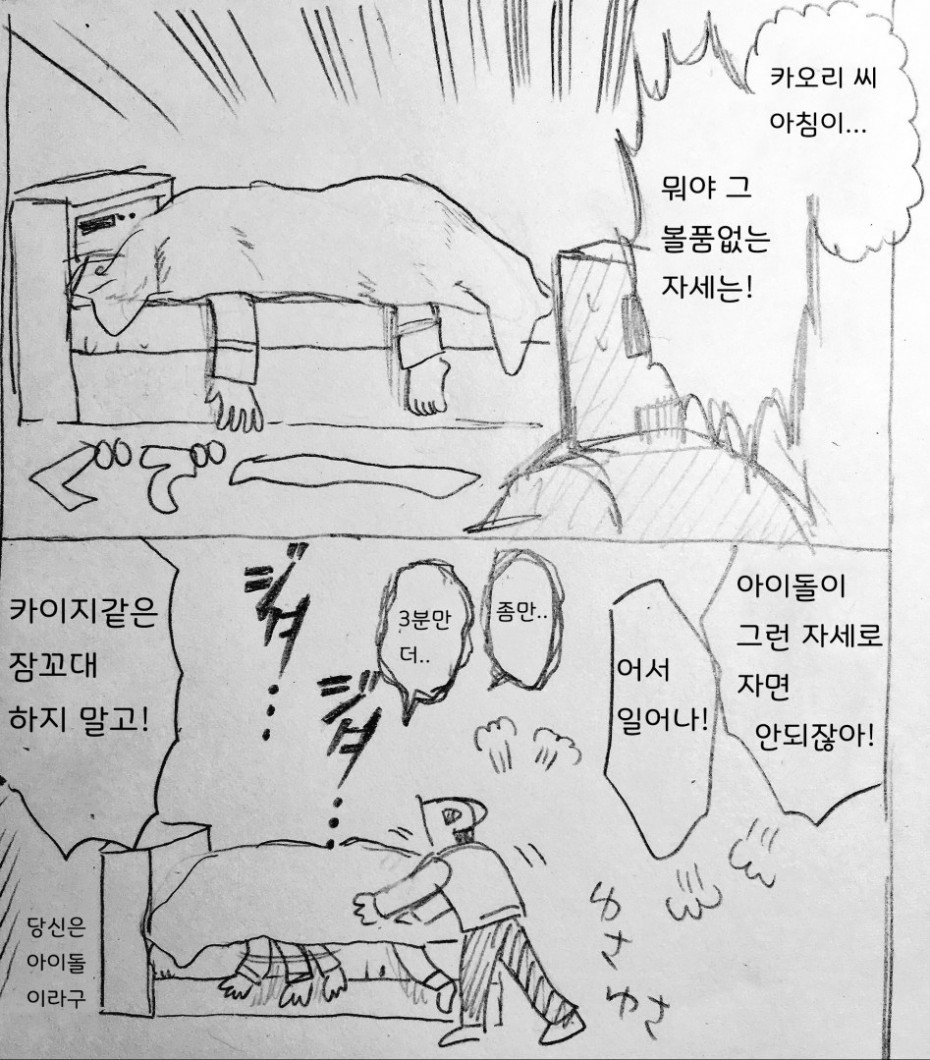 카오리 씨
아침이...
뭐야 그
볼품없는
자세는!
ぐでー
아이돌이
그런 자세로
자면
안되잖아!
어서
일어나!
좀만..
3분만
더..
ゆさ
ゆさ
카이지같은
잠꼬대
하지 말고!
당신은
아이돌
이라구